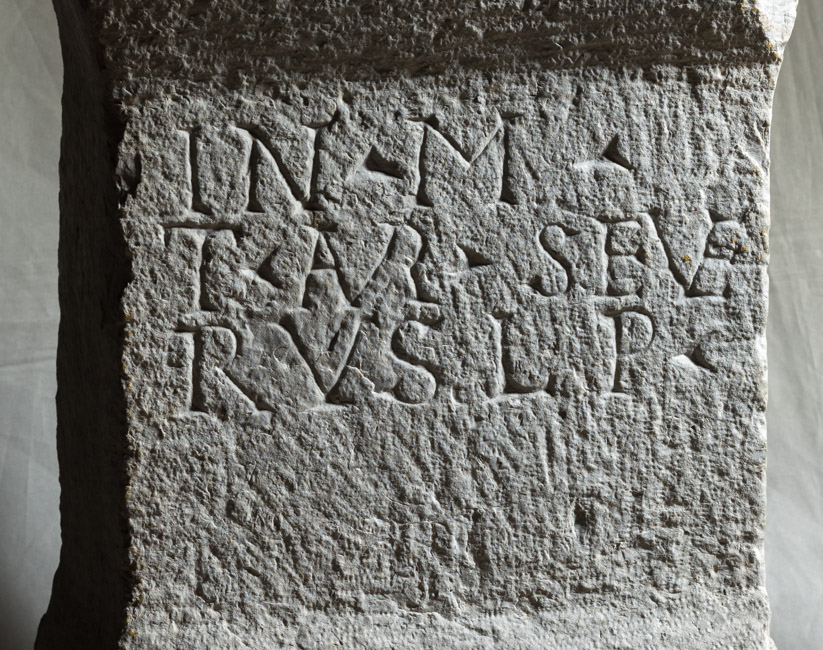 IN · M ·
TAVR · SEVE
RVS L P ·